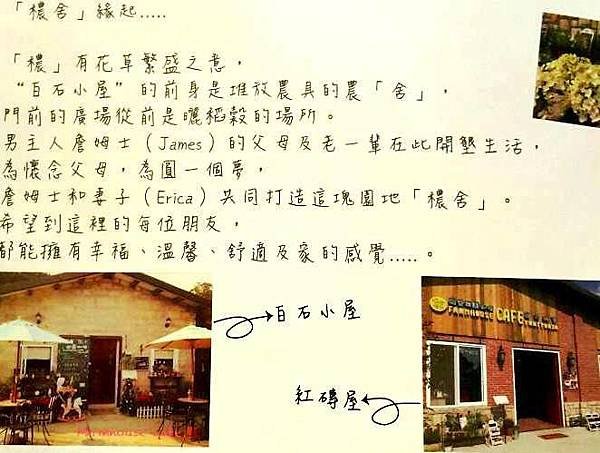 「檂舍」緣起.....
「檂」有花草繁盛之意，
“百石小屋”的前身是堆放農具的農「舍」，
門前的廣場從前是曬稻穀的場所。
男主人詹姆士（James）的父母及老一輩在此開墾生活，
為懷念父母，為圓一個夢，
詹姆士和妻子（Erica）共同打造這塊園地「檂舍」。
希望到這裡的每位朋友，
都能擁有幸福、溫馨、舒適及家的感覺.....。
百石小屋
紅磚屋
FARMHOUSE CAFE